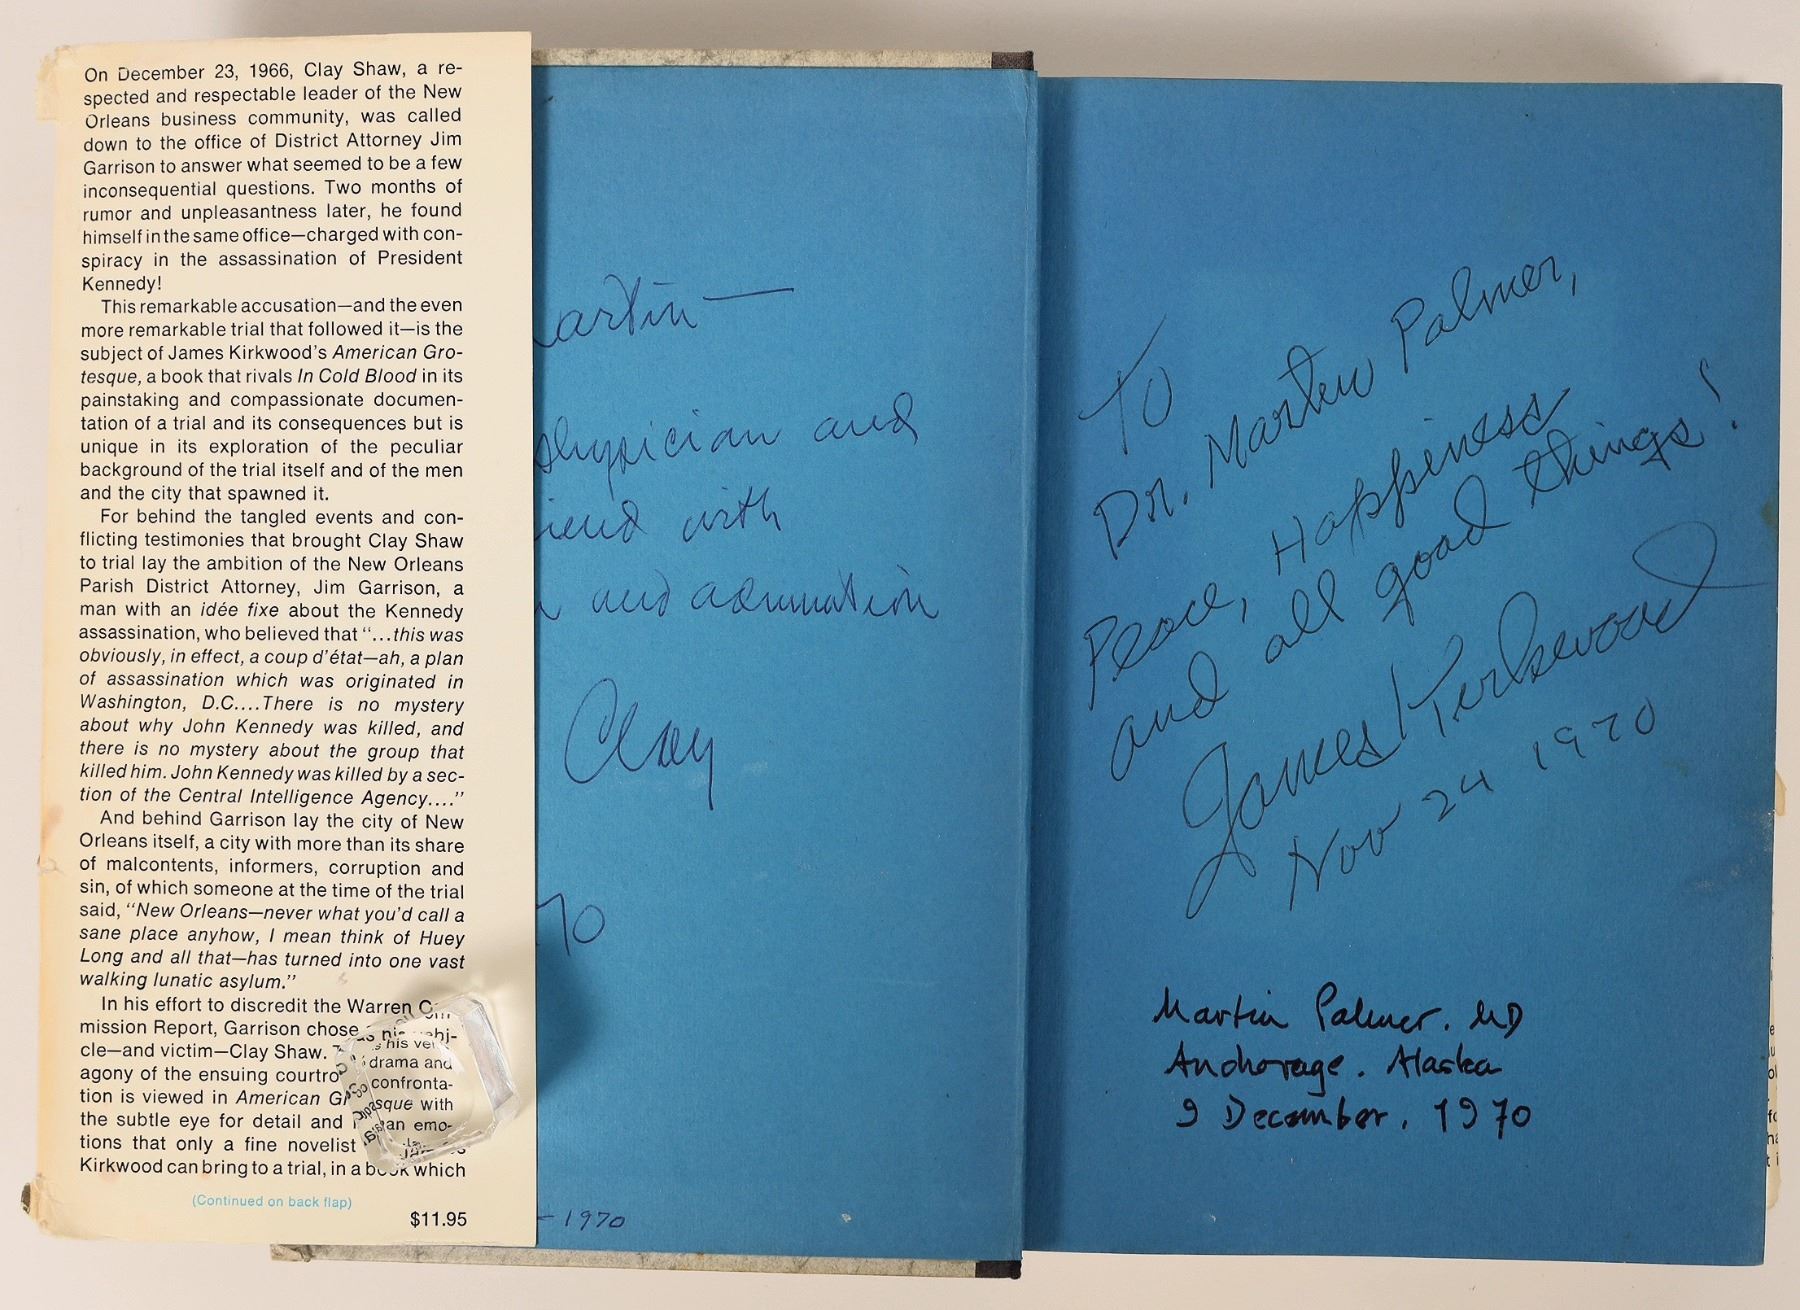 On December 23, 1966, Clay Shaw, a re-
spected and respectable leader of the New
Orleans business community, was called
down to the office of District Attorney Jim
Garrison to answer what seemed to be a few
inconsequential questions. Two months of
rumor and unpleasantness later, he found
himself in the same office—charged with con-
spiracy in the assassination of President
Kennedy!
This remarkable accusation—and the even
more remarkable trial that followed it—is the
subject of James Kirkwood's American Gro-
tesque, a book that rivals In Cold Blood in its
painstaking and compassionate documen-
tation of a trial and its consequences but is
unique in its exploration of the peculiar
background of the trial itself and of the men
and the city that spawned it.
For behind the tangled events and con-
flicting testimonies that brought Clay Shaw
to trial lay the ambition of the New Orleans
Parish District Attorney, Jim Garrison, a
man with an idée fixe about the Kennedy
assassination, who believed that "...this was
obviously, in effect, a coup d'état—ah, a plan
of assassination which was originated in
Washington, D.C....There is no mystery
about why John Kennedy was killed, and
there is no mystery about the group that
killed him. John Kennedy was killed by a sec-
tion of the Central Intelligence Agency...."
And behind Garrison lay the city of New
Orleans itself, a city with more than its share
of malcontents, informers, corruption and
sin, of which someone at the time of the trial
said, "New Orleans—never what you'd call a
sane place anyhow, I mean think of Huey
Long and all that—has turned into one vast
walking lunatic asylum."
In his effort to discredit the Warren Com-
mission Report, Garrison chose as his vehi-
cle—and victim—Clay Shaw.
agony of the ensuing courtro drama and
confronta-
tion is viewed in American Grotesque with
the subtle eye for detail and an emo-
tions that only a fine novelist
Kirkwood can bring to a trial, in a book which
(Continued on back flap)
$11.95
artin—
physician and
iend with
and admiration
Clay
70
- 1970
To
Dr. Martin Palmer,
Peace, Happiness
and all good things!
James Kirkwood
Nov 24 1970
Martin Palmer. MD
Anchorage. Alaska
9 December. 1970